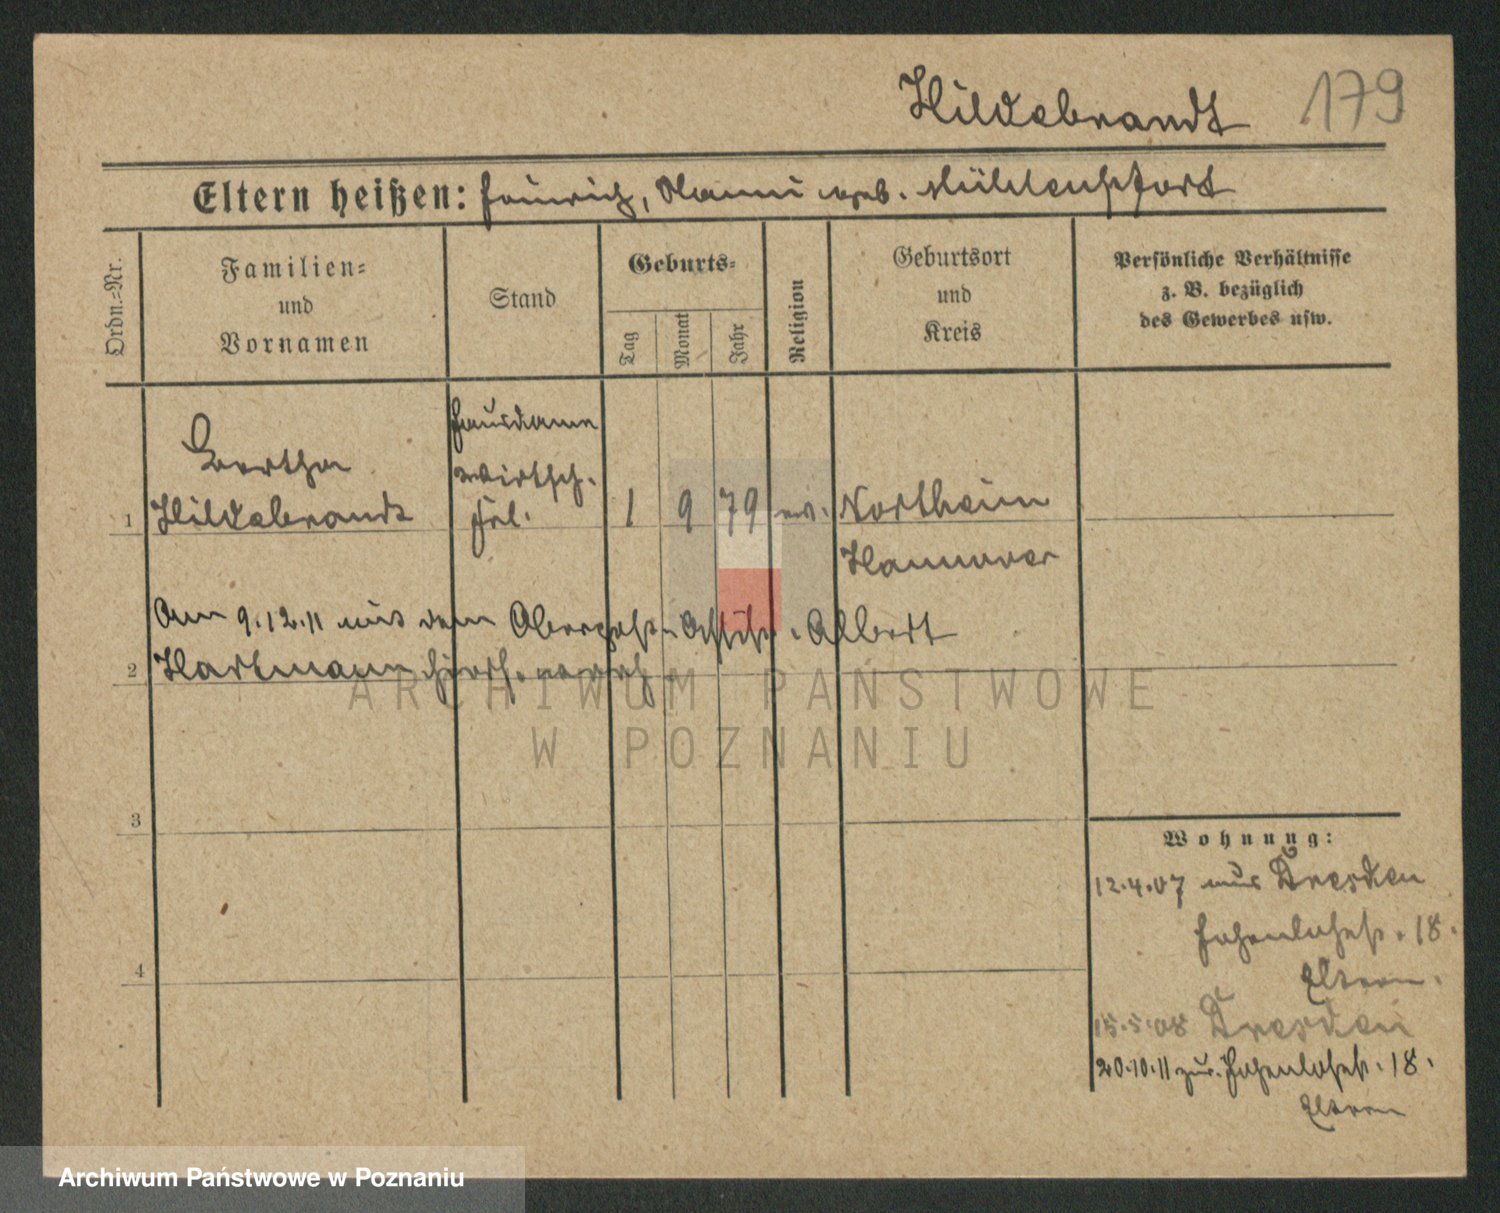 Hildebrandt 179
Eltern heißen: Heinrich, Nanni geb. Mühlenpfort
Ordn.=Nr.
Familien=
und
Vornamen
Stand
Geburts=
Tag
Monat
Jahr
Religion
Geburtsort
und
Kreis
Persönliche Verhältnisse
z. B. bezüglich
des Gewerbes usw.
Hausdame
Bertha
Wirtsch.
1 Hildebrandt Frl. 1 9 79 ev. Northeim
Hannover
Am 9.12.11 mit dem Albert
2 Hartmann hier verh.
ARCHIWUM PAŃSTWOWE
W POZNANIU
3
4
Wohnung:
12.4.07 aus Dresden
Hohenlohestr. 18.
Eltern.
15.5.08 Dresden
20.10.11 zur. Hohenlohestr. 18.
Eltern
Archiwum Państwowe w Poznaniu